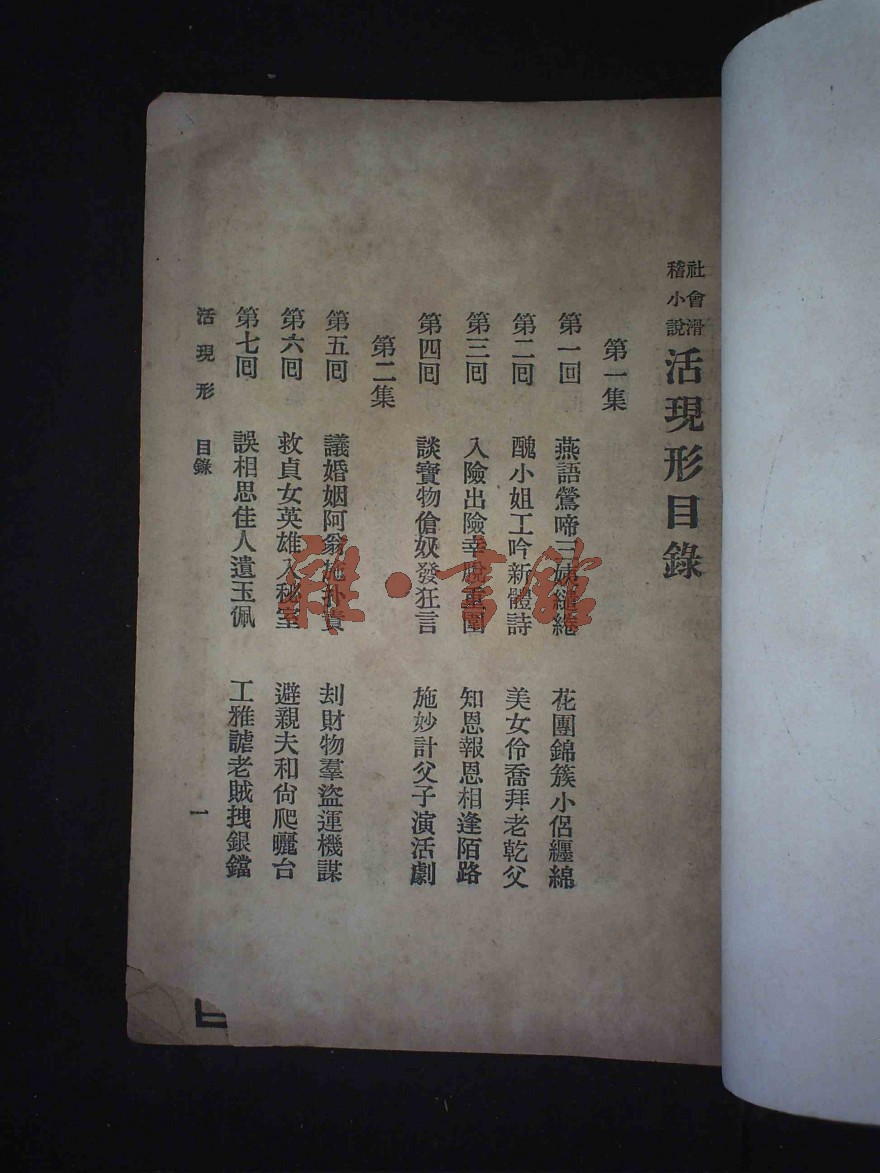 社會滑稽小說 活現形目錄
第一集
第一回 燕語鶯啼三姨繾綣 花團錦簇小侶纏綿
第二囘 醜小姐工吟新體詩 美女伶喬拜老乾父
第三囘 入險出險幸脫重圍 知恩報恩相逢陌路
第四囘 談寶物傖奴發狂言 施妙計父子演活劇
第二集
第五囘 議婚姻阿翁施扑責 刦財物羣盜運機謀
第六囘 救貞女英雄入秘室 避親夫和尙爬曬台
第七囘 誤相思佳人遺玉佩 工雅謔老賊拽銀鐺
活現形 目錄 一
雜·書館